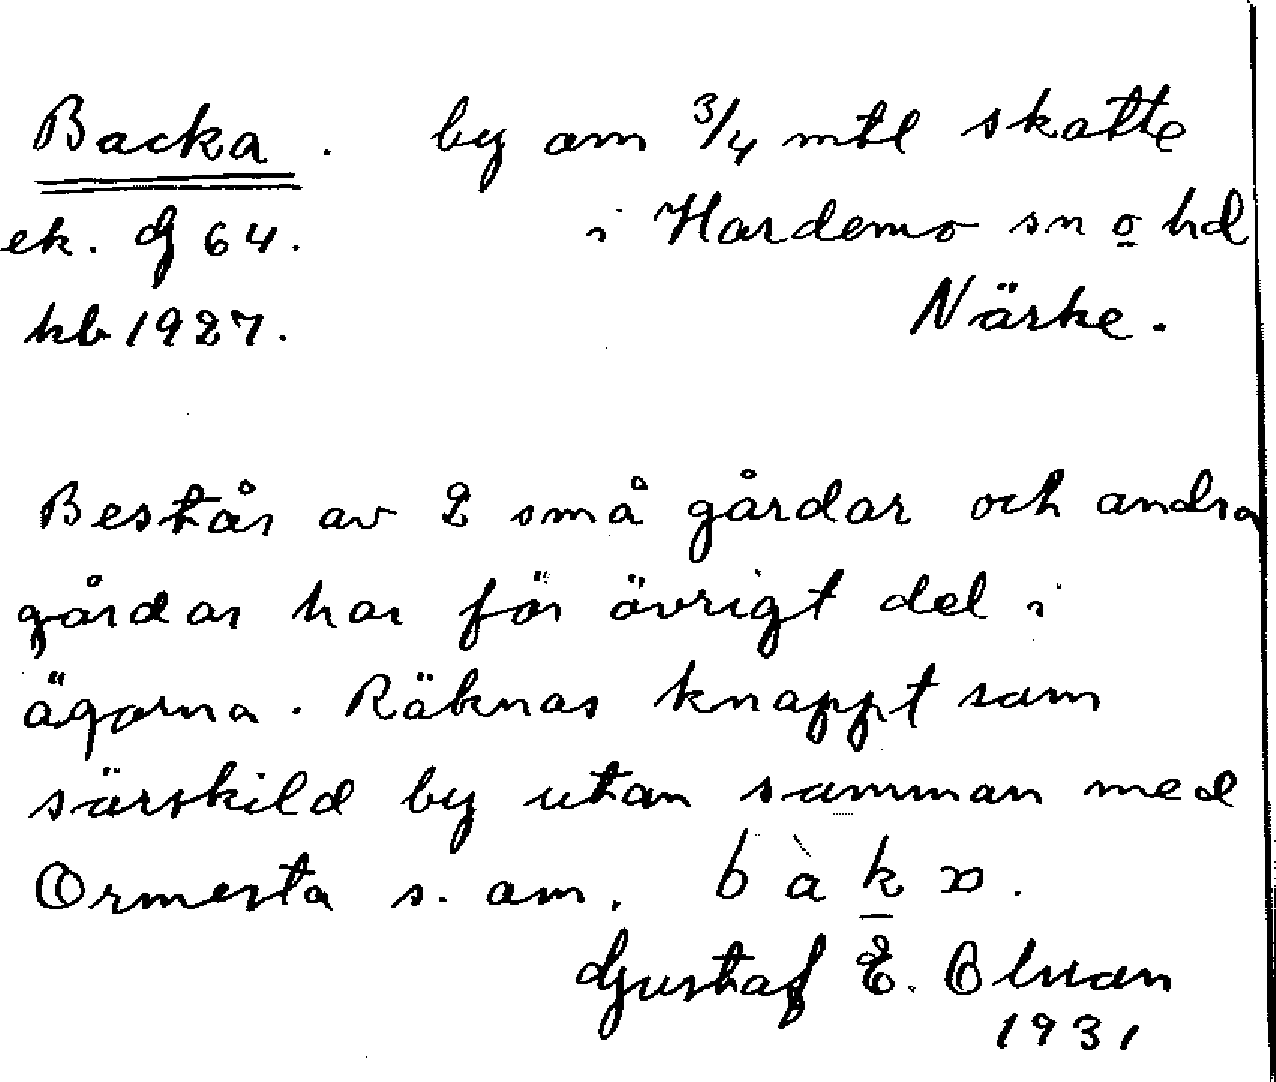 Backa . by om 3/4 mtl skatte
ek. G 64. i Hardemo sn o hd
kb 1927. Närke.
Består av 2 små gårdar och andra
gårdar har för övrigt del i
ägorna. Räknas knappt som
särskild by utan samman med
Ormesta s. om. bàkɒ.
Gustaf E. Olsson
1931